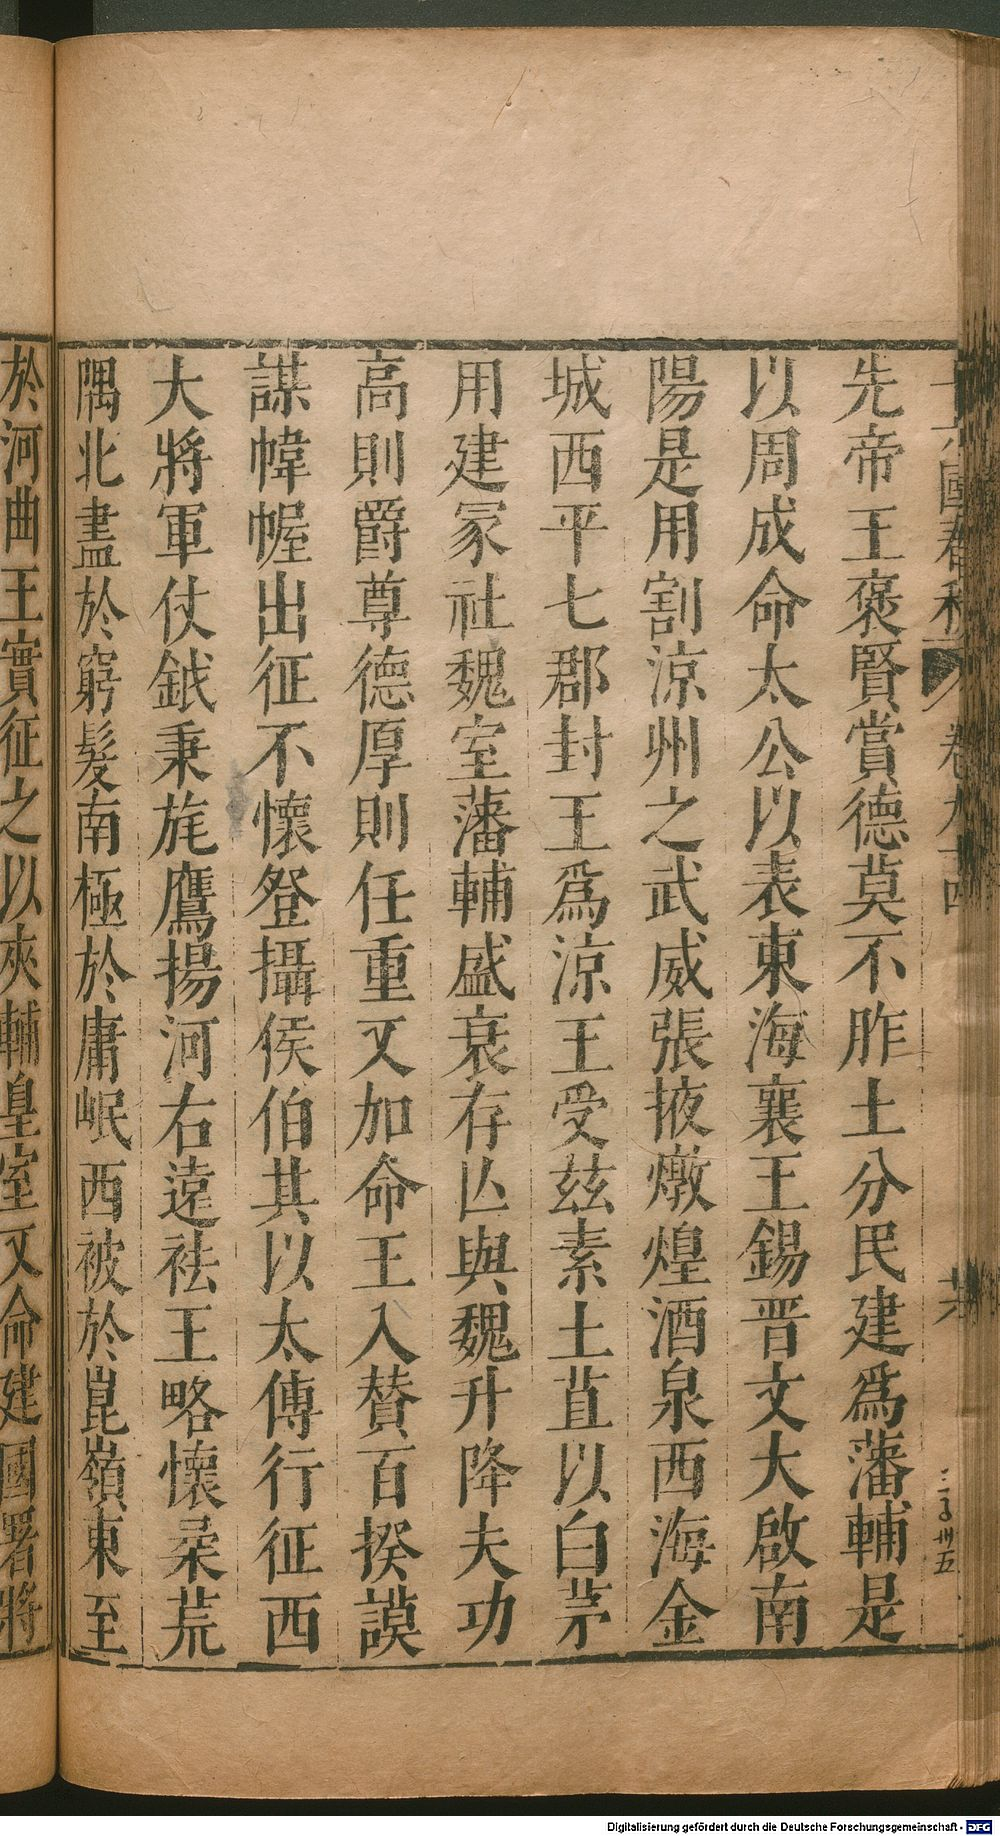 先帝王褒賢賞德莫不胙土分民建爲藩輔是
以周成命太公以表東海襄王錫晋文大啟南
陽是用割涼州之武威張掖燉煌酒泉西海金
城西平七郡封王爲涼王受茲素土苴以白茅
用建冡社魏室藩輔盛衰存亾與魏升降夫功
高則爵尊德厚則任重又加命王入賛百揆謨
謀幃幄出征不懷登攝侯伯其以太傅行征西
大將軍仗鉞秉旄鷹揚河右遠祛王略懷柔荒
隅北盡於窮髮南極於庸岷西被於崑嶺東至
於河曲王實征之以夾輔皇室又命建國署將
Digitalisierung gefördert durch die Deutsche Forschungsgemeinschaft - DFG